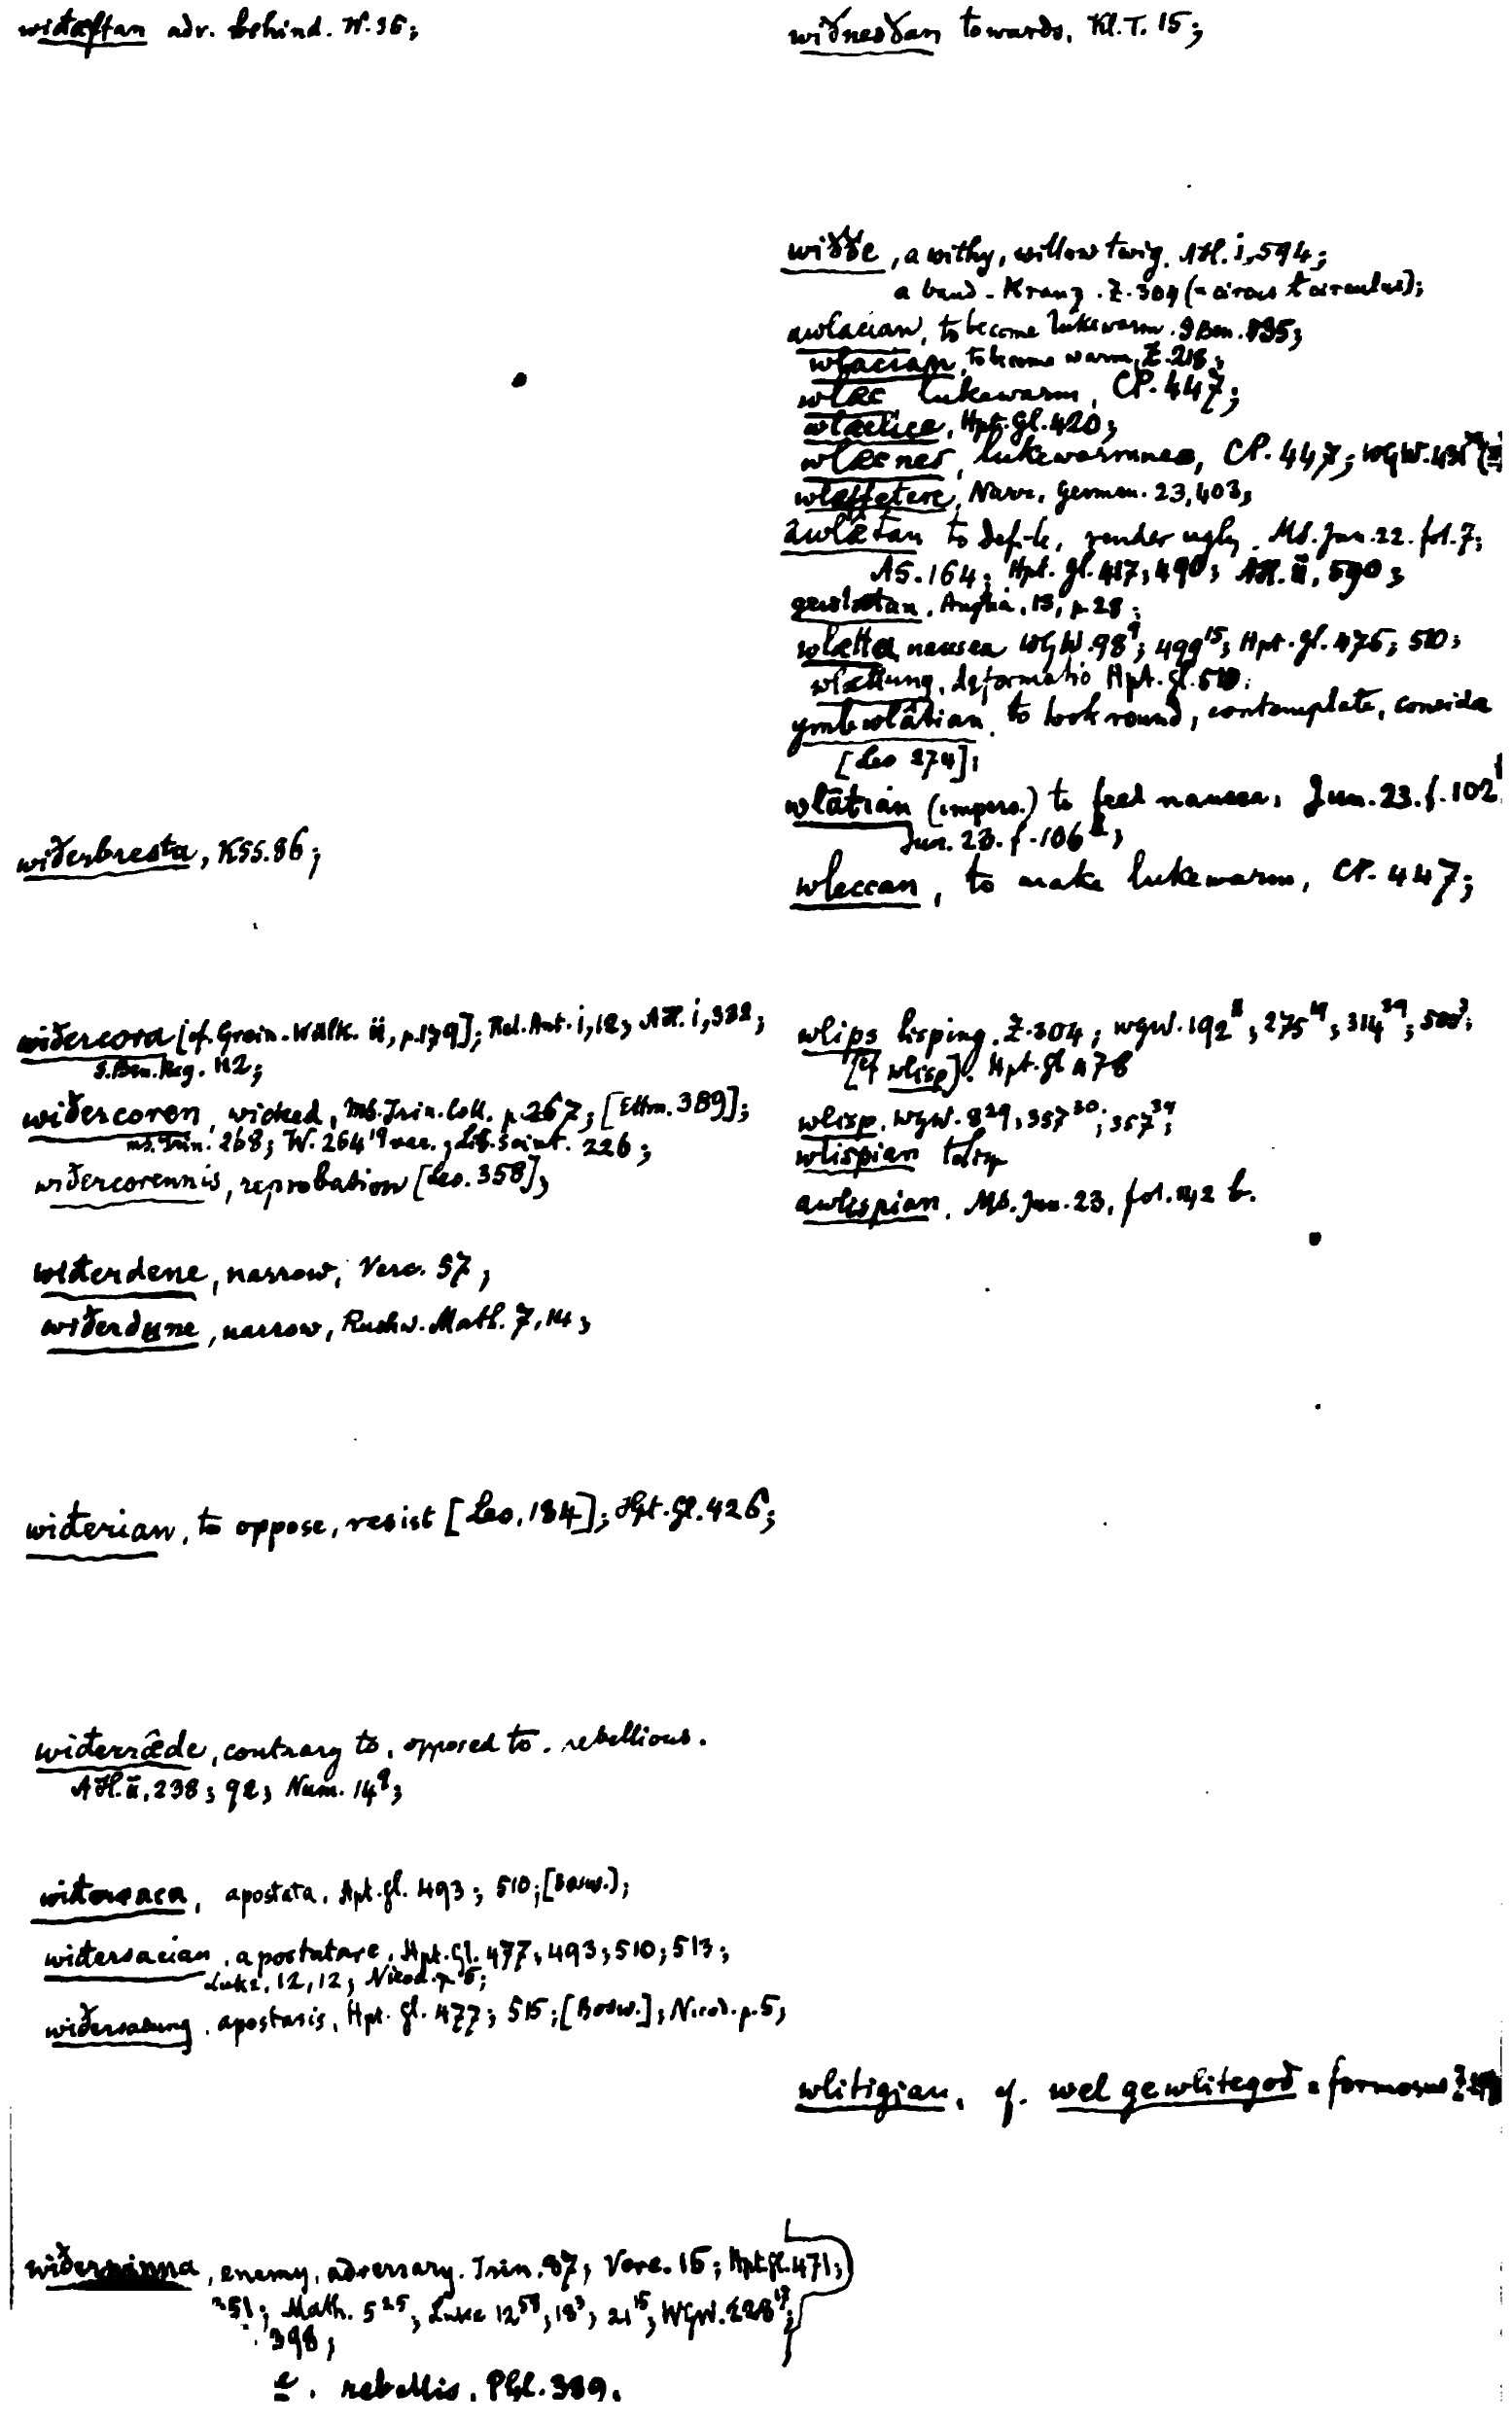 wiðæftan adv. behind. W. 36;
wiðerbresta, KSS. 86;
wiðercora [cf. Grein-Wülk. ii, p. 179]; Rel. Ant. i, 12; AH. i, 332;
S. Ben. Reg. 112;
wiðercoren, wicked, MS. Trin. Coll. p. 267; [Ettm. 389];
MS. Trin. 268; W. 264¹⁹ var.; Lib. Scint. 226;
wiðercorennis, reprobation [Leo. 358];
wiðerdene, narrow, Verc. 57;
wiðerdune, narrow, Rushw. Math. 7, 14;
wiðerian, to oppose, resist [Leo. 184]; Hpt. Gl. 426;
wiðerræ̂de, contrary to, opposed to. rebellious.
AH. ii, 238; 92; Num. 14⁹;
wiðersaca, apostata, Hpt. Gl. 493; 510; [Bosw.];
wiðersacian, apostatare, Hpt. Gl. 477; 493; 510; 513;
Luke, 12, 12; Nicod. p. 5;
wiðersacung, apostasis, Hpt. Gl. 477; 515; [Bosw.]; Nicod. p. 5;
wiðerwinna, enemy, adversary. Trin. 87; Verc. 15; Hpt. Gl. 471;
351; Math. 5²⁵; Luke 12⁵⁸; 18³; 21¹⁵; WGW. 228¹⁷;
398;
e. rebellis. PGl. 389.
wiðnesðan towards, Kl. T. 15;
wiððe, a withy, willow twig. AH. i, 594;
a band - Kranz. Z. 304 (= circus ł circulus);
awlacian, to become lukewarm.
wlacian, to become warm, Z. 218;
wlæc lukewarm, CP. 447;
wlætlice, Hpt. Gl. 420;
wlæcnes, lukewarmness, CP. 447; WGW.
wlæffetere, Narr. German. 23, 403;
âwlætan to defile, render ugly. MS. Jun. 22. fol. 7;
AS. 164; Hpt. Gl. 417; 490; AH. ii, 590;
gewlætan, Anglia, 13, p. 28;
wlætta, nausea WGW. 98⁹; 499¹⁵; Hpt. Gl. 476; 510;
wlættung, deformatio Hpt. Gl. 510;
ymbwlâtian to look round, contemplate, conside
[Leo 274];
wlātian (impers.) to feel nausea, Jun. 23. f. 102
Jun. 23. f. 106
wleccan, to make lukewarm, CP. 447;
wlips lisping. Z. 304; WGW. 192⁸; 275¹⁹; 314³⁹; 500³;
[cf wlisp]. Hpt. Gl 478
wlisp. WGW. 8²⁹; 357³⁰; 357³⁹;
wlispian to lisp
awlispian. MS. Jun. 23, fol. 142 b.
wlitigian, cf. wel gewlitegod = formosus